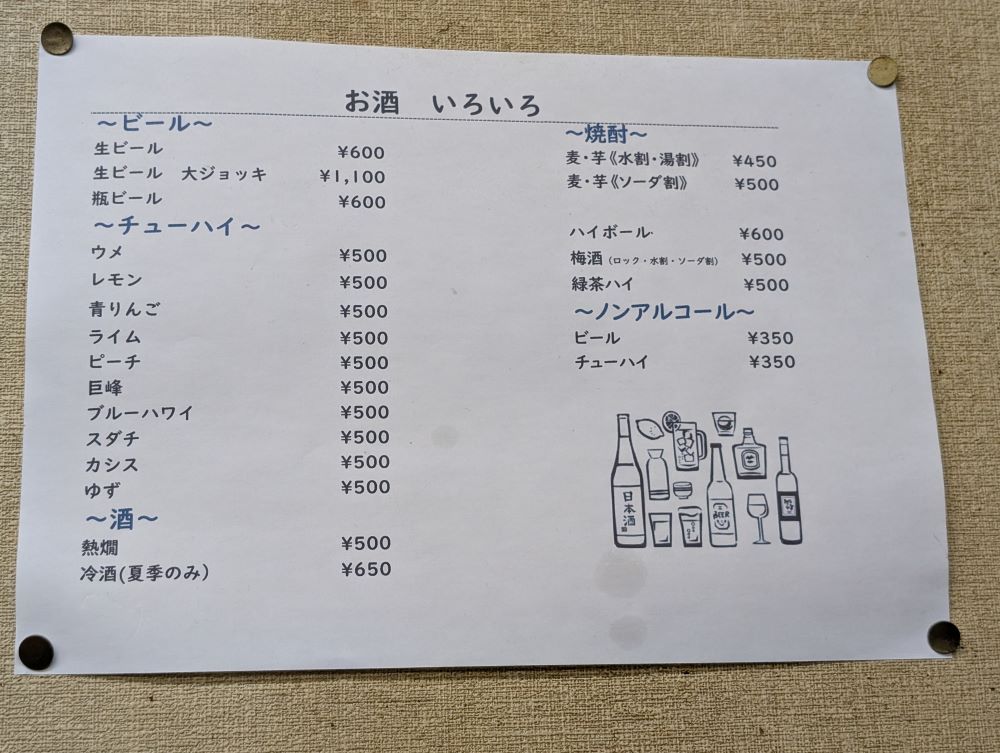 お酒　いろいろ
～ビール～
生ビール ¥600
生ビール　大ジョッキ ¥1,100
瓶ビール ¥600
～チューハイ～
ウメ ¥500
レモン ¥500
青りんご ¥500
ライム ¥500
ピーチ ¥500
巨峰 ¥500
ブルーハワイ ¥500
スダチ ¥500
カシス ¥500
ゆず ¥500
～酒～
熱燗 ¥500
冷酒(夏季のみ) ¥650
～焼酎～
麦・芋《水割・湯割》 ¥450
麦・芋《ソーダ割》 ¥500
ハイボール ¥600
梅酒（ロック・水割・ソーダ割） ¥500
緑茶ハイ ¥500
～ノンアルコール～
ビール ¥350
チューハイ ¥350
日本酒
BEER